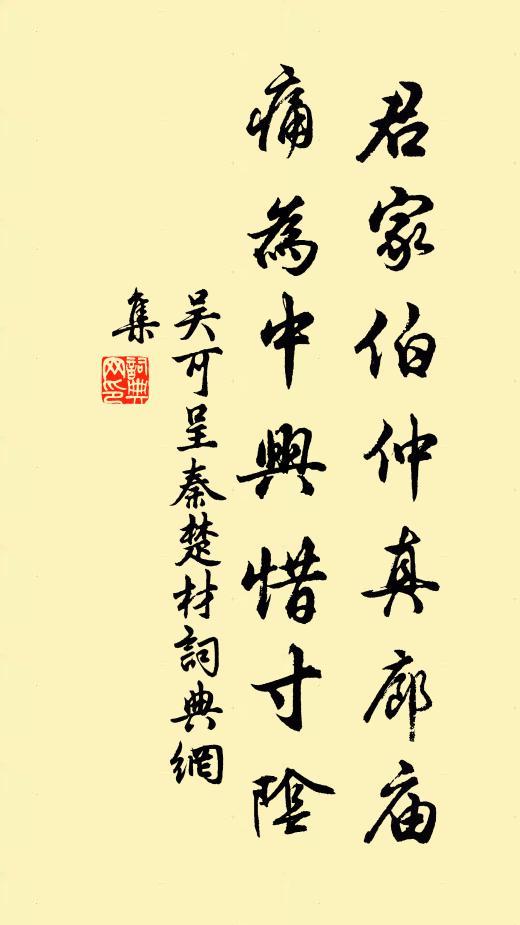 君家伯仲真廊庙
痛為中興惜寸陰
吴可呈秦楚材詞典網
集
詞典
网印